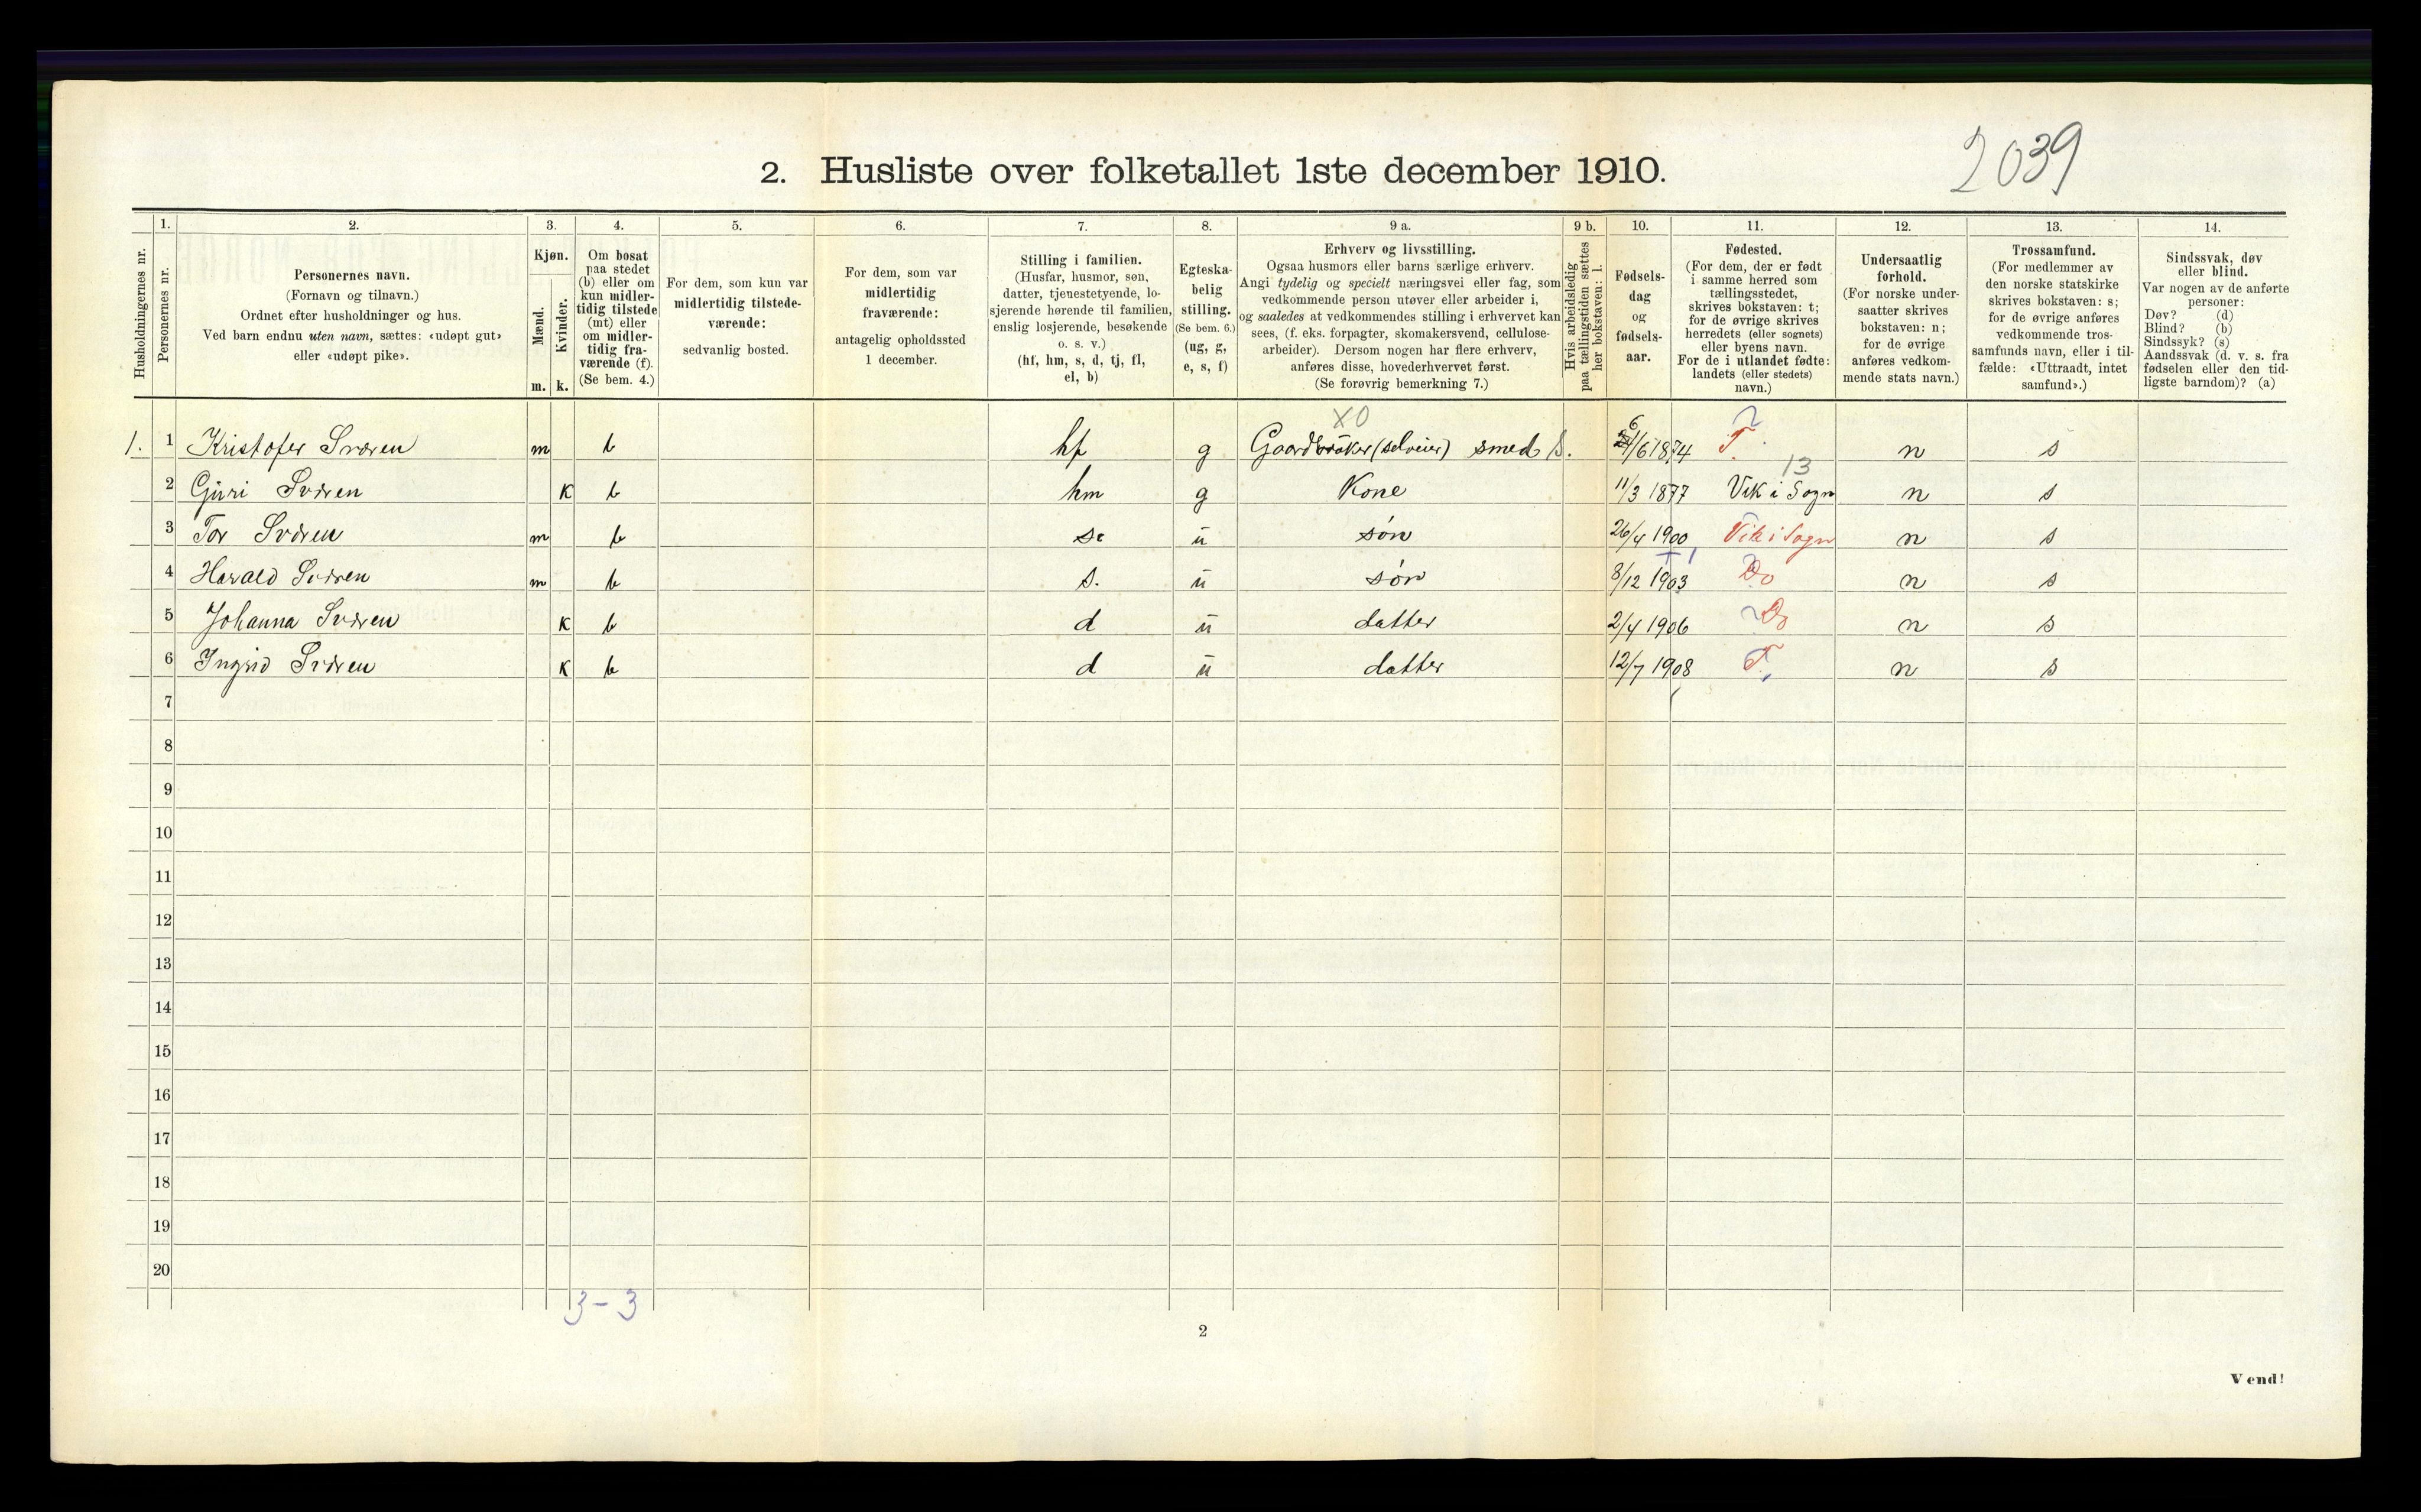 2039
2. Husliste over folketallet 1ste december 1910.
Husholdningernes nr.
1.
Personernes nr.
2.
Personernes navn.
(Fornavn og tilnavn.)
Ordnet efter husholdninger og hus.
Ved barn endnu uten navn, sættes: «udøpt gut»
eller «udøpt pike».
3.
Kjøn.
Mænd.
Kvinder.
m. k.
4.
Om bosat
paa stedet
(b) eller om
kun midler-
tidig tilstede
(mt) eller
om midler-
tidig fra-
værende (f).
(Se bem. 4.)
5.
For dem, som kun var
midlertidig tilstede-
værende:
sedvanlig bosted.
6.
For dem, som var
midlertidig
fraværende:
antagelig opholdssted
1 december.
7.
Stilling i familien.
(Husfar, husmor, søn,
datter, tjenestetyende, lo-
sjerende hørende til familien,
enslig losjerende, besøkende
o. s. v.)
(hf, hm, s, d, tj, fl,
el, b)
8.
Egteska-
belig
stilling.
(Se bem. 6.)
(ug, g,
e, s, f)
9 a.
Erhverv og livsstilling.
Ogsaa husmors eller barns særlige erhverv.
Angi tydelig og specielt næringsvei eller fag, som
vedkommende person utøver eller arbeider i,
og saaledes at vedkommendes stilling i erhvervet kan
sees, (f. eks. forpagter, skomakersvend, cellulose-
arbeider). Dersom nogen har flere erhverv,
anføres disse, hovederhvervet først.
(Se forøvrig bemerkning 7.)
9 b.
Hvis arbeidsledig
paa tællingstiden sættes
her bokstaven: l.
10.
Fødsels-
dag
og
fødsels-
aar.
11.
Fødested.
(For dem, der er født
i samme herred som
tællingsstedet,
skrives bokstaven: t;
for de øvrige skrives
herredets (eller sognets)
eller byens navn.
For de i utlandet fødte:
landets (eller stedets)
navn.)
12.
Undersaatlig
forhold.
(For norske under-
saatter skrives
bokstaven: n;
for de øvrige
anføres vedkom-
mende stats navn.)
13.
Trossamfund.
(For medlemmer av
den norske statskirke
skrives bokstaven: s;
for de øvrige anføres
vedkommende tros-
samfunds navn, eller i til-
fælde: «Uttraadt, intet
samfund».)
14.
Sindssvak, døv
eller blind.
Var nogen av de anførte
personer:
Døv? (d)
Blind? (b)
Sindssyk? (s)
Aandssvak (d. v. s. fra
fødselen eller den tid-
ligste barndom)? (a)
XO
1. 1 Kristofer Sværen m b hf g Gaardbruker (selveier) smed 6/6 1874 T. n s
13
2 Guri Sværen k b hm g Kone 11/3 1877 Vik i Sogn n s
3 Tor Sværen m b s u søn 26/4 1900 Vik i Sogn n s
4 Harald Sværen m b s. u søn 8/12 1903 Do n s
5 Johanna Sværen k b d u datter 2/4 1906 Do n s
6 Ingrid Sværen k b d u datter 12/7 1908 T. n s
7
8
9
10
11
12
13
14
15
16
17
18
19
20
3-3
2
Vend!